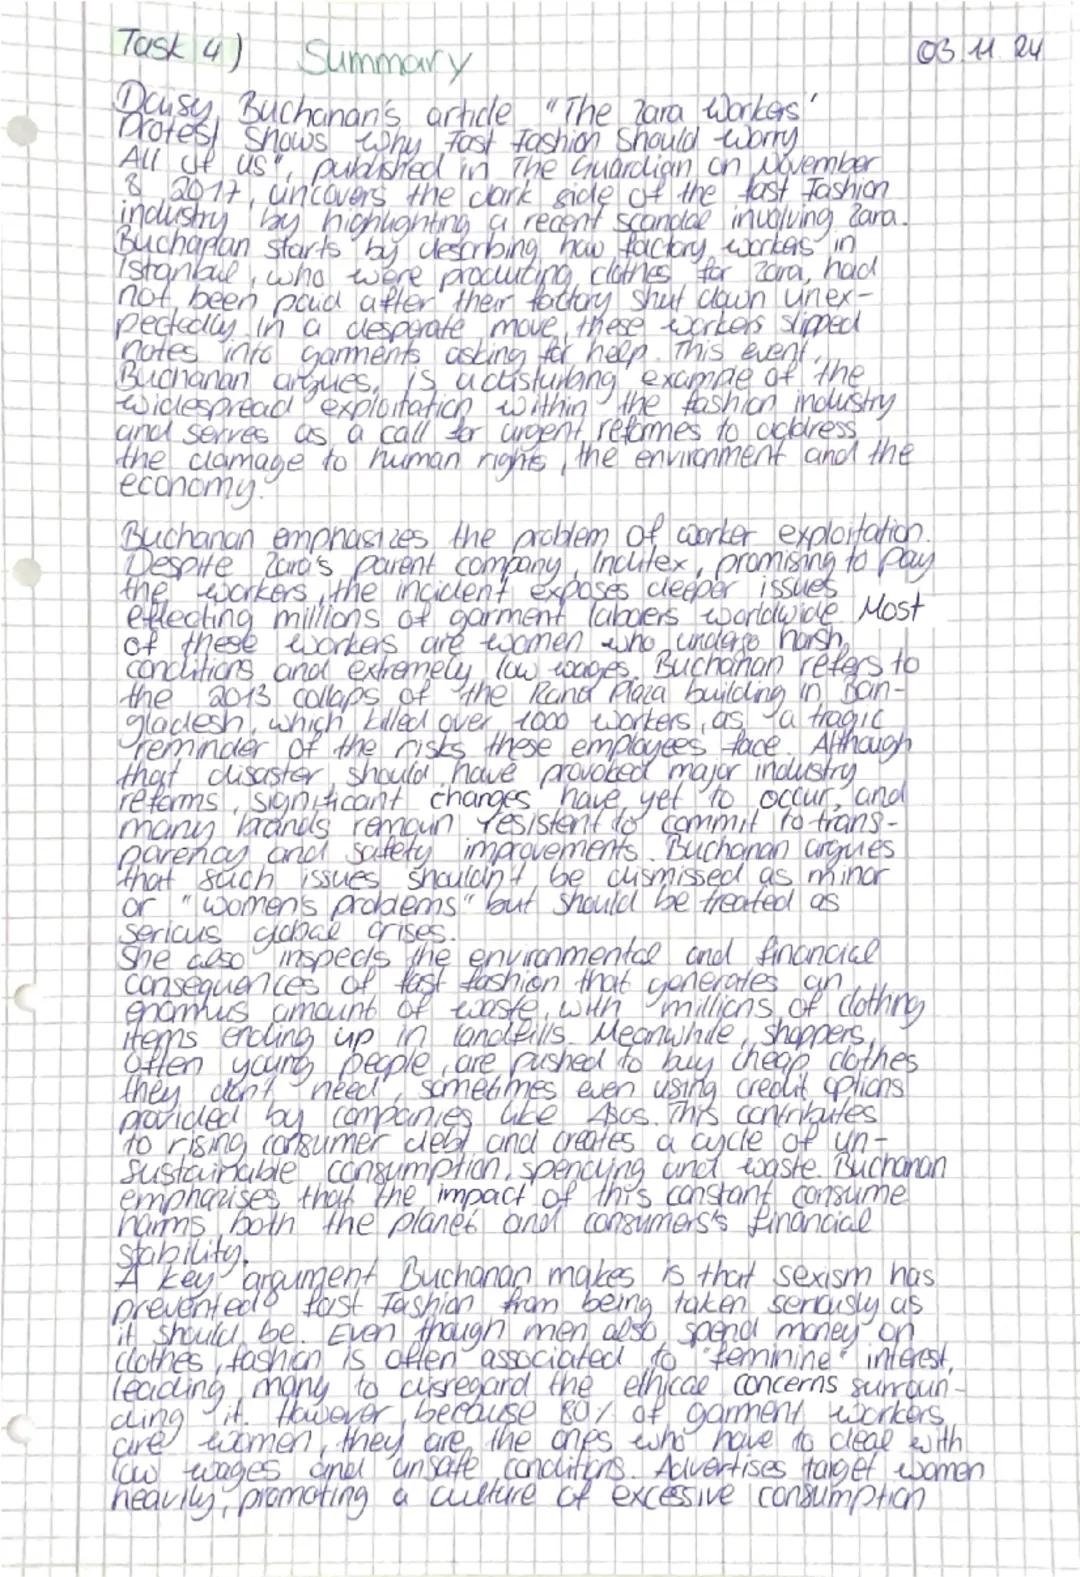 Task 4) Summary 03.11.24
Daisy Buchanan's article "The Zara Workers'
Protest Shows Why Fast Fashion Should Worry
All Of Us", published in The Guardian on November
8 2017, uncovers the dark side of the fast fashion
industry by highlighting a recent scandal involving Zara.
Buchanan starts by describing how factory workers in
Istanbul, who were producing clothes for Zara, had
not been paid after their factory shut down unex-
pectedly. In a desperate move, these workers slipped
notes into garments asking for help. This event,
Buchanan argues, is a disturbing example of the
widespread exploitation within the fashion industry
and serves as a call for urgent reformes to address
the damage to human rights, the environment and the
economy.
Buchanan emphasizes the problem of worker exploitation.
Despite Zara's parent company, Inditex, promising to pay
the workers, the incident exposes deeper issues
effecting millions of garment laboers worldwide. Most
of these workers are women who undergo harsh
conditions and extremely low wages. Buchanan refers to
the 2013 collaps of the Rana Plaza building in Ban-
gladesh, which killed over 1000 workers, as a tragic
reminder of the risks these employees face. Although
that disaster should have provoked major industry
reforms, significant changes have yet to occur, and
many brands remain resistent to commit to trans-
parency and safety improvements. Buchanan argues
that such issues shouldn't be dismissed as minor
or "women's problems" but should be treated as
serious global crises.
She also inspects the environmental and financial
consequences of fast fashion that generates an
enormus amount of waste, with millions of clothing
items ending up in landfills. Meanwhile, shoppers,
often young people, are pushed to buy cheap clothes
they don't need, sometimes even using credit options
provided by companies like Asos. This contributes
to rising consumer debt and creates a cycle of un-
sustainable consumption, spending and waste. Buchanan
emphasises that the impact of this constant consume
harms both the planet and consumers's financial
stability.
A key argument Buchanan makes is that sexism has
prevented fast fashion from being taken seriously as
it should be. Even though men also spend money on
clothes, fashion is often associated to "feminine" interest,
leading many to disregard the ethical concerns surroun-
ding it. However, because 80% of garment workers
are women, they are the ones who have to deal with
low wages and unsafe conditions. Advertises target women
heavily, promoting a culture of excessive consumption